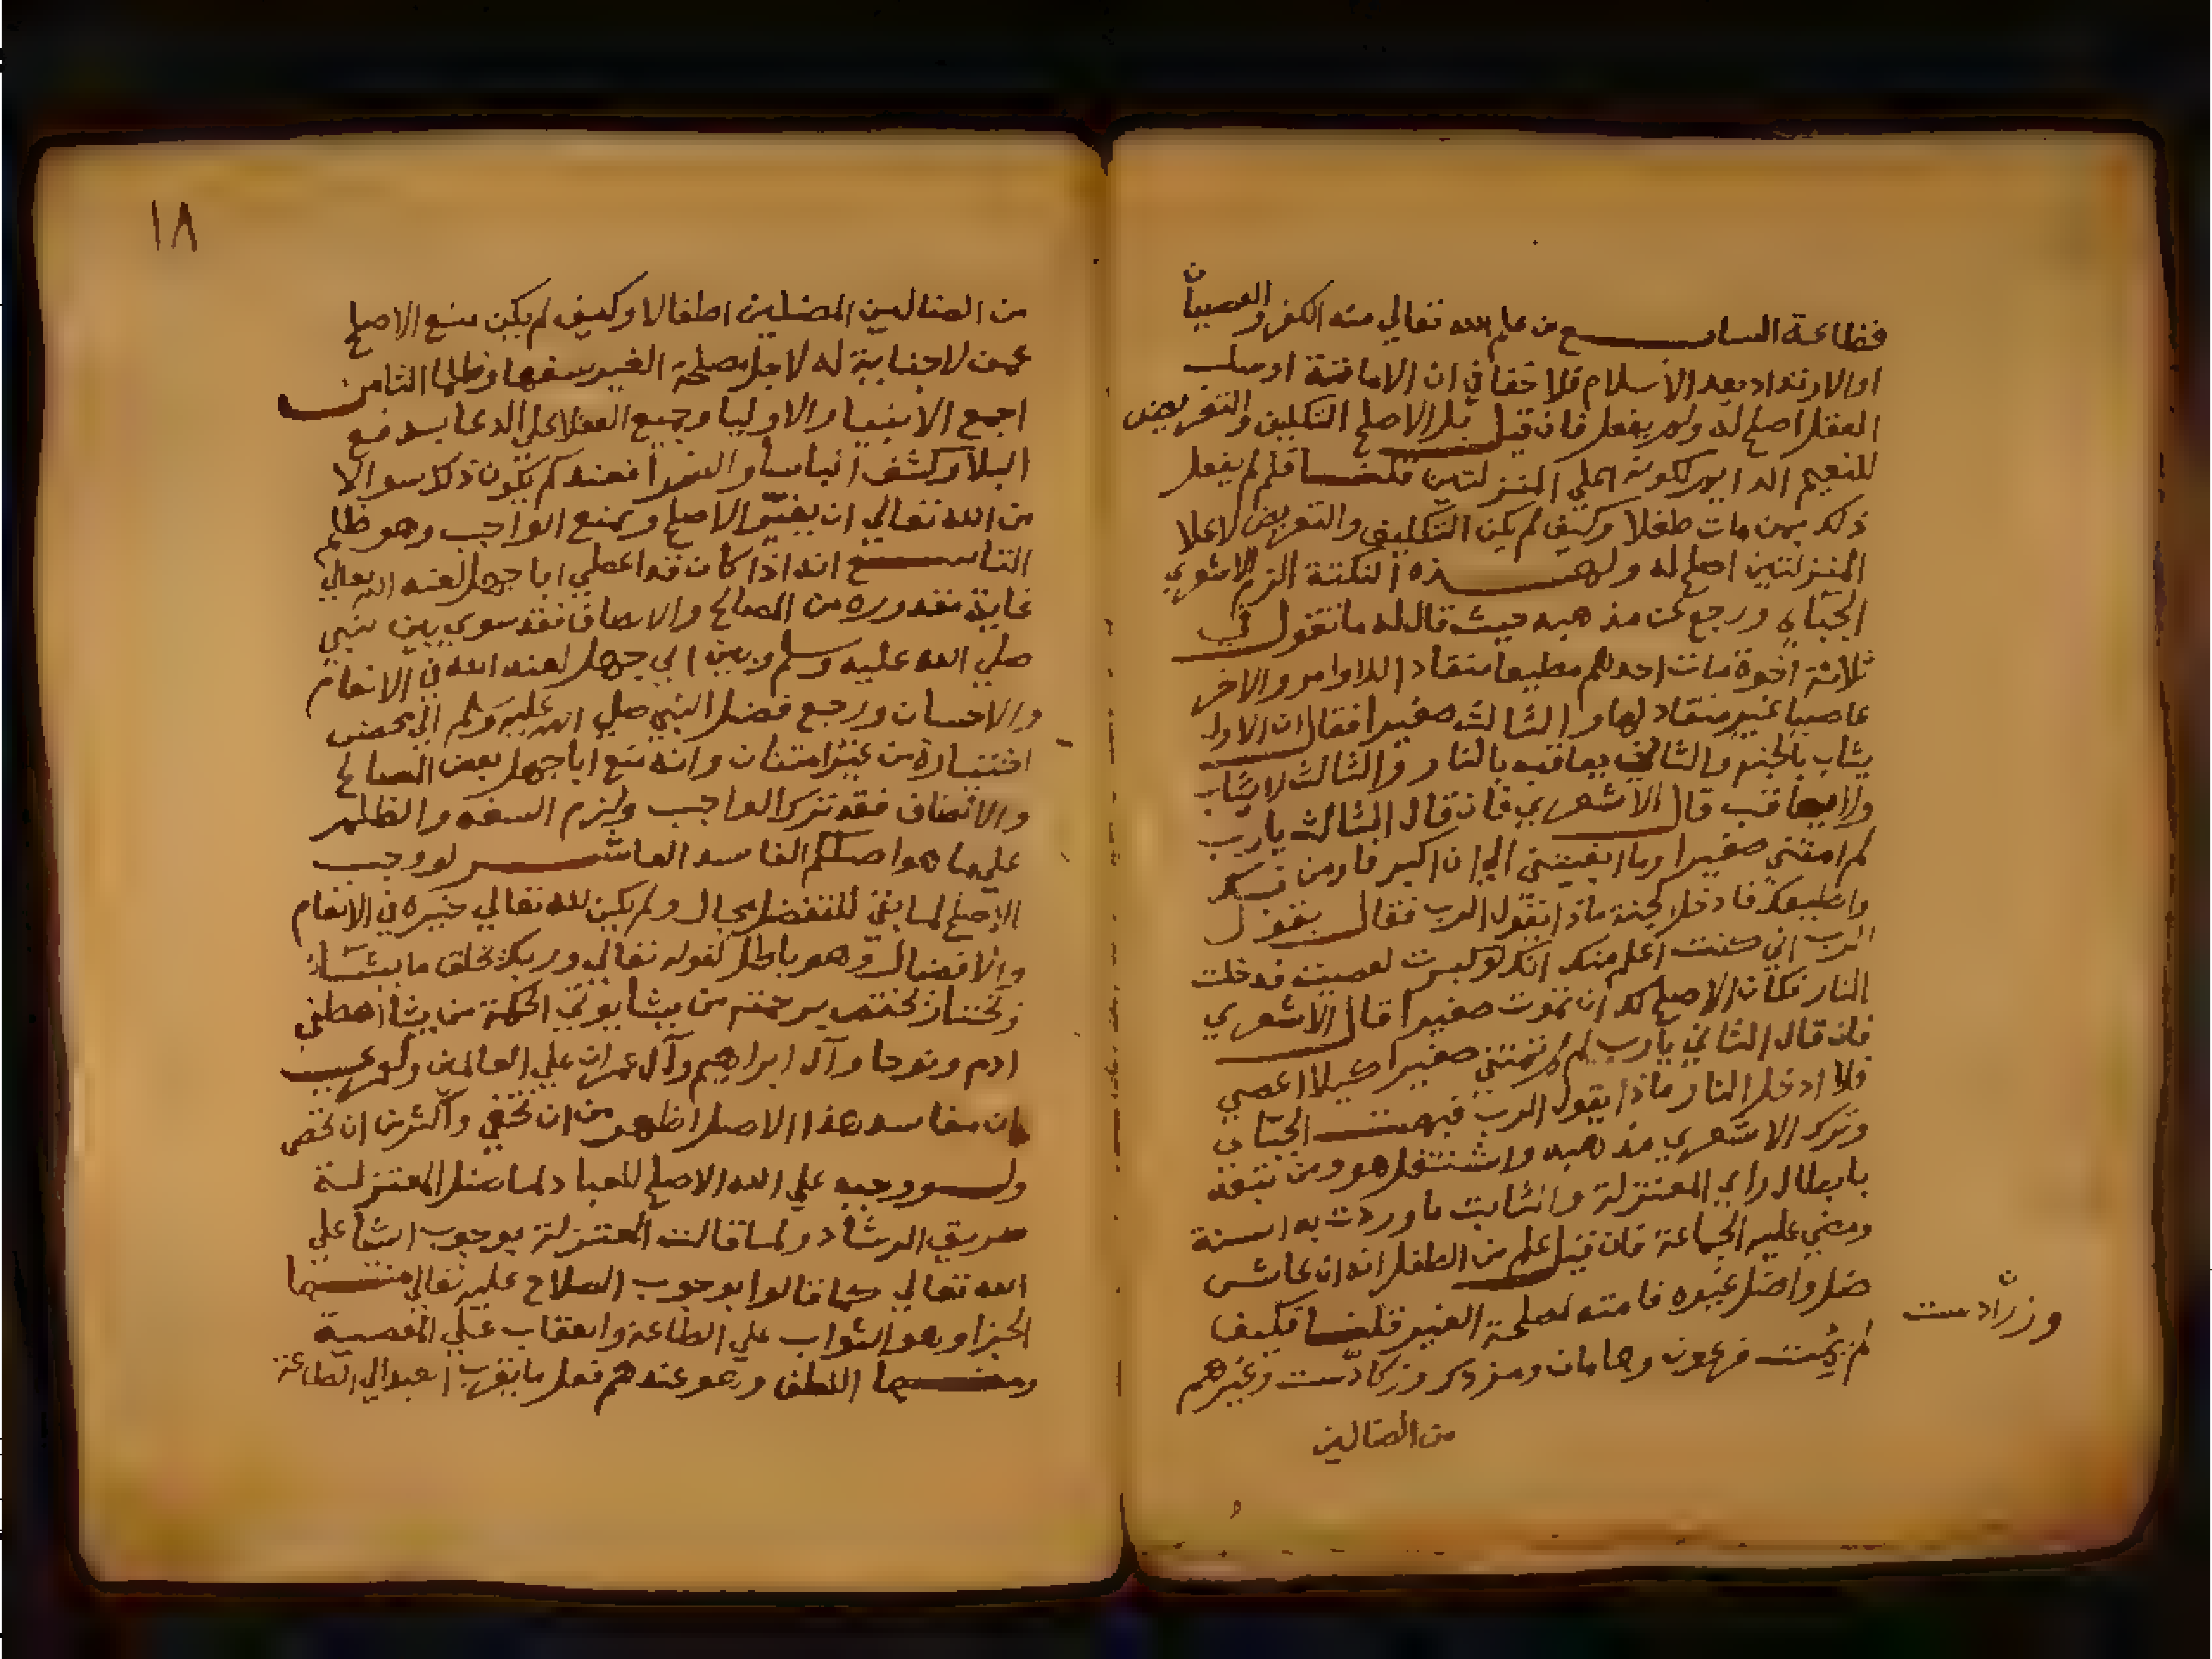 فظاعة السابع من علم الله تعالي منه الكفر والعصيان
او الارتداد بعد الاسلام فلا خفا في ان الاماتة او سلب
العقل اصلح له ولم يفعل فان قيل بل الاصلح التكليف والتعريض
للنعيم الدايم لكونه اعلي المنزلتين قلنا فلم لم يفعل
ذلك بمن مات طفلا وكيف لم يكن التكليف والتعريض لاعلا
المنزلتين اصلح له ولهذه النكتة الزم الاشعري
الجبّاي ورجع عن مذهبه حيث قال له ما تقول في
ثلاثة اخوة مات احدهم مطيعا منقاد اللاوامر والاخر
عاصيا غير منقاد لها والثالث صغيرا فقال ان الاول
يثاب بالجنه والثاني يعاقب بالنار والثالث لا يثاب
ولا يعاقب قال الاشعري فان قال الثالث يارب
لم امتني صغيرا وما ابقيتني الي ان اكبر فاومن بك
واطيعك فادخل الجنة ماذا يقول الرب فقال يقول
الرب اني كنت اعلم منك انك لو كبرت لعصيت فدخلت
النار فكان الاصلح لك ان تموت صغيرا قال الاشعري
فان قال الثاني يارب لم لم تمتني صغيرا كيلا اعصي
فلا ادخل النار ماذا يقول الرب فبهت الجبّاي
وترك الاشعري مذهبه واشتغل هو ومن تبعه
بابطال راي المعتزلة واثبات ما وردت به السنة
ومضي عليه الجماعة فان قيل علم من الطفل انه ان عاش
ضل واضل غيره فامته لمصلحة الغير قلنا فكيف
لم يمت فرعون وهامان ومزدك وزرادست وغيرهم
من الضالين
وزرّادست
١٨
من الضالين المضلين اطفالا وكيف لم يكن منع الاصلح
عمن لا جناية له لاجل مصلحة الغير سفها وظلما الثامن
اجمع الانبيا والاوليا وجميع العقلا علي الدعا بدفع
البلا وكشف الباسا والضرا فعندكم يكون ذلك سوالا
من الله تعالي ان يغيّر الاصلح ويمنع الواجب وهو ظلم
التاسع انه اذا كان قد اعطي ابا جهل لعنه الله تعالي
غاية مقدوره من المصالح والالطاف فقد سوي بين نبي
صلي الله عليه وسلم وبين ابي جهل لعنه الله في الانعام
والاحسان ورجع فضل النبي صلي الله عليه وسلم الي محض
اختياره من غير امتنان وانه منع ابا جهل بعض المصالح
والالطاف فقد ترك الواجب ولزم السفه والظلم
علي ما هو اصلكم الفاسد العاشر لو وجب
الاصلح لما بقي للتفضل مجال ولم يكن لله تعالي خيره في الانعام
والافضال وهو باطل لقوله تعالي وربك يخلق ما يشاء
ويختار يختص برحمته من يشا يوتي الحكمة من يشا اصطفي
ادم ونوحا وآل ابراهيم وآل عمران علي العالمين ولعمري
ان مفاسد هذا الاصل اظهر من ان تخفي واكثر من ان تحصى
ولو وجب علي الله الاصلح للعباد لما ضل المعتزلة
طريق الرشاد ولما قالت المعتزلة بوجوب اشيا علي
الله تعالي كما قالوا بوجوب الصلاح عليه تعالي منها
الجزا وهو الثواب علي الطاعة والعقاب علي المعصية
ومنها اللطف وهو عندهم فعل ما يقرب العبد الي الطاعة